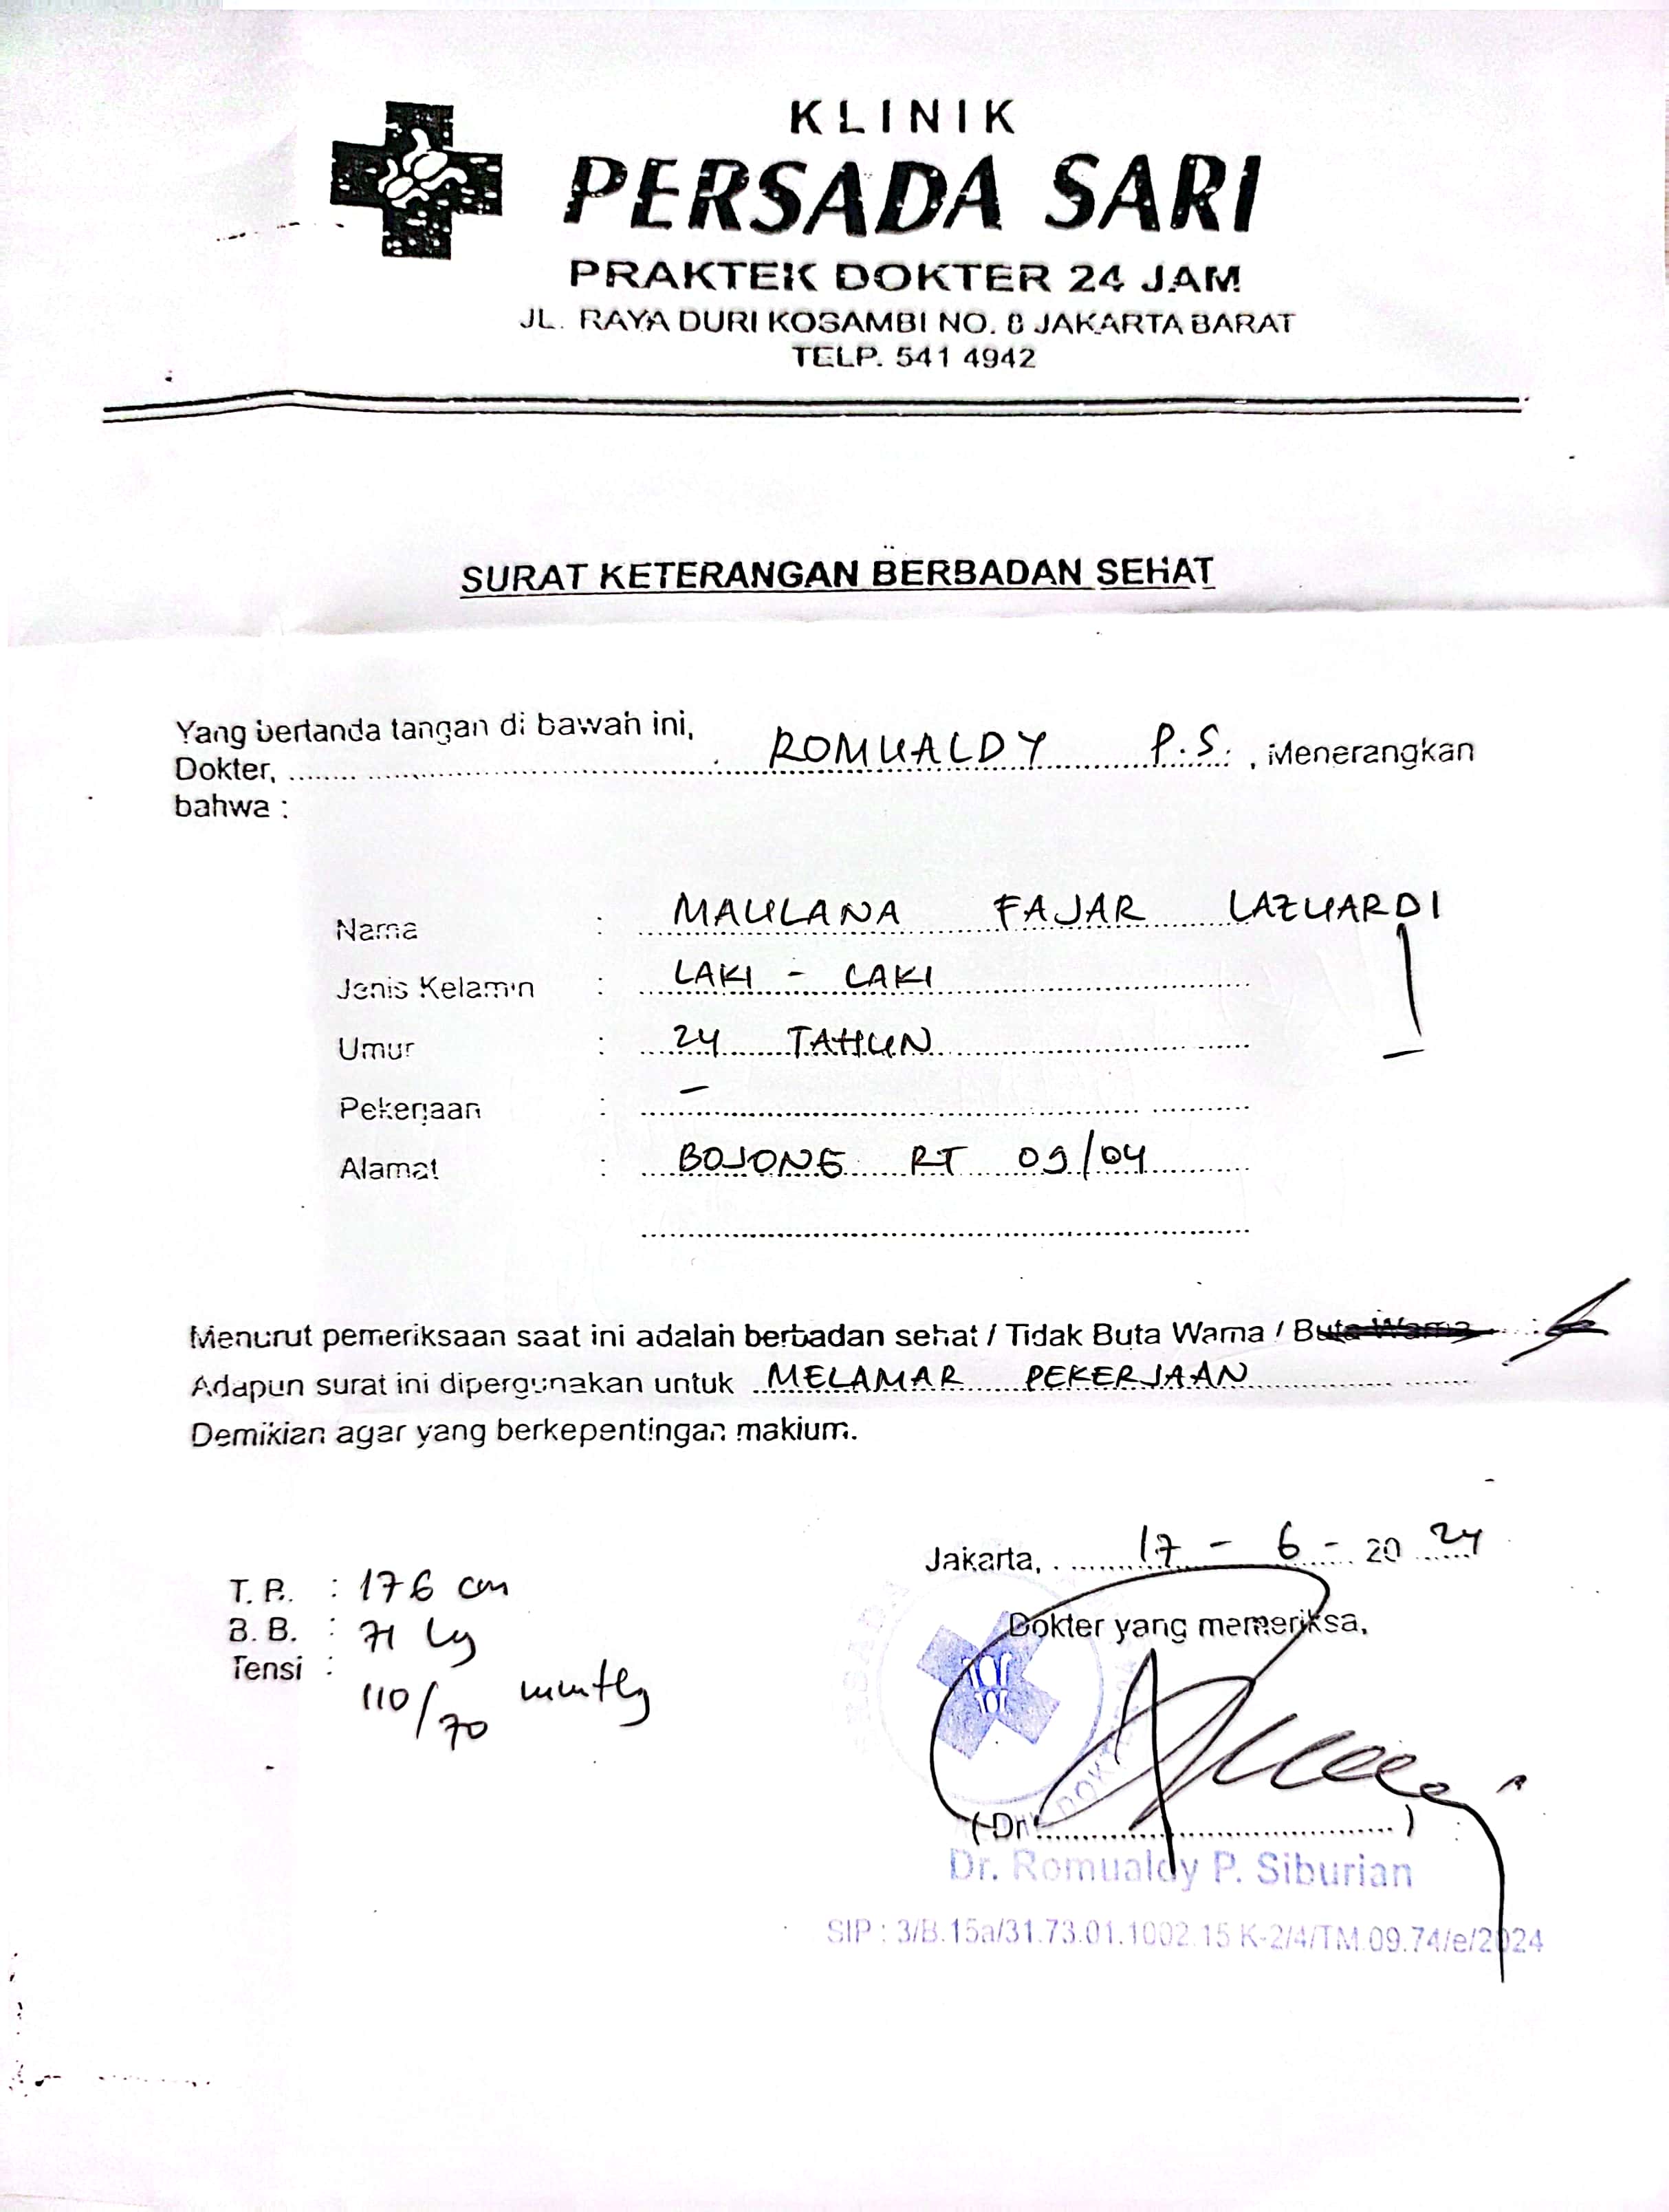 KLINIK
PERSADA SARI
PRAKTEK DOKTER 24 JAM
JL. RAYA DURI KOSAMBI NO. 8 JAKARTA BARAT
TELP. 541 4942
SURAT KETERANGAN BERBADAN SEHAT
Yang bertanda tangan di bawah ini,
Dokter, ROMUALDY P.S. , Menerangkan
bahwa :
Nama : MAULANA FAJAR LAZUARDI
Jenis Kelamin : LAKI - LAKI
Umur : 24 TAHUN
Pekerjaan : -
Alamat : BOJONG RT 09/04
Menurut pemeriksaan saat ini adalah berbadan sehat / Tidak Buta Warna / Buta Warna
Adapun surat ini dipergunakan untuk MELAMAR PEKERJAAN
Demikian agar yang berkepentingan maklum.
Jakarta, 17 - 6 - 20 24
Dokter yang memeriksa,
T. B. : 176 cm
B. B. : 71 kg
Tensi : 110/70 mmHg
( Dr. )
Dr. Romualdy P. Siburian
SIP : 3/B.15a/31.73.01.1002.15 K-2/4/TM.09.74/e/2024